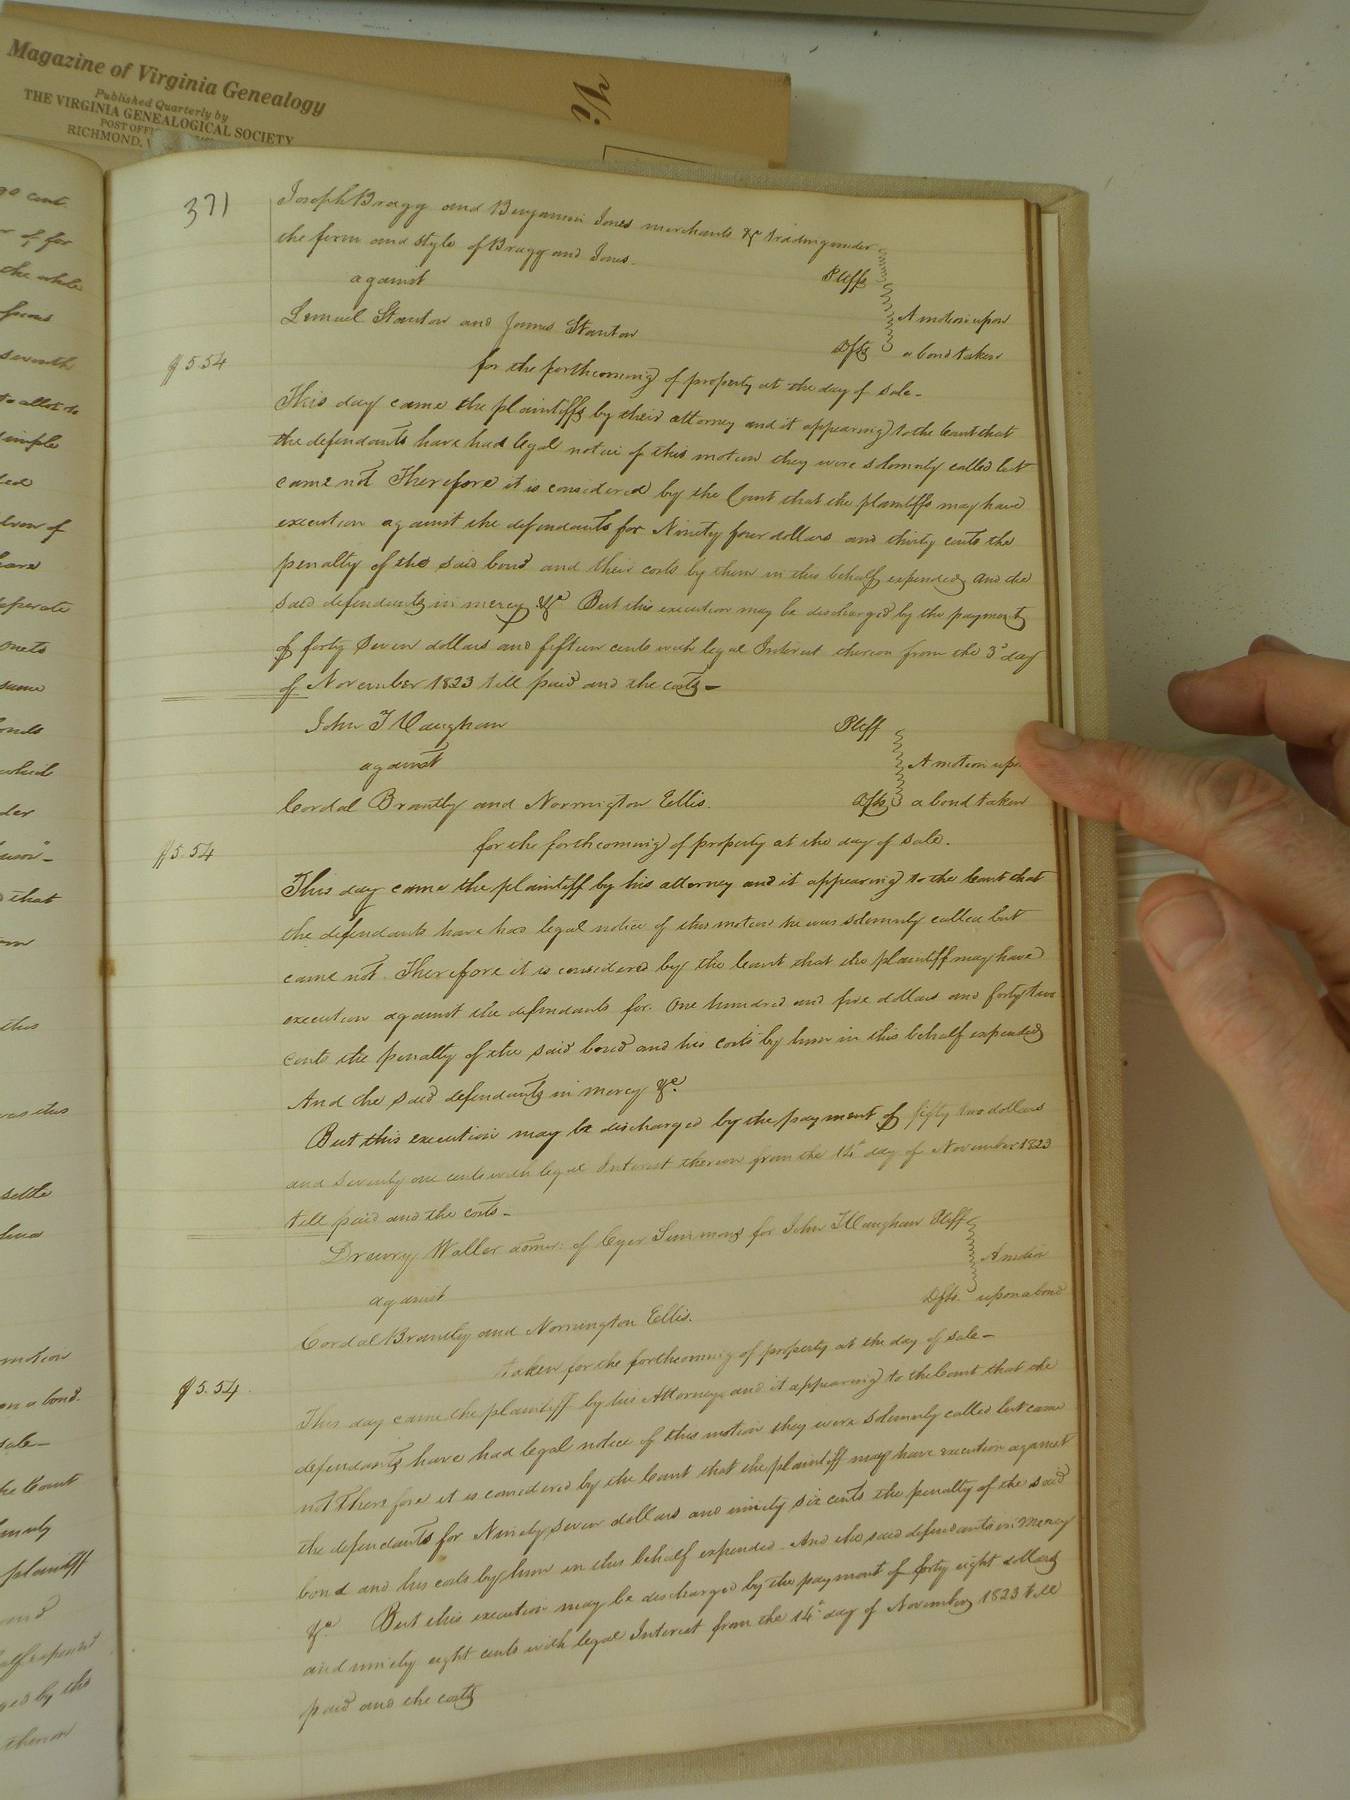 Magazine of Virginia Genealogy
Published Quarterly by
THE VIRGINIA GENEALOGICAL SOCIETY
POST OFFI
RICHMOND, V
Vi
371
Joseph Bragg and Benjamin Jones merchants &c trading under
the firm and style of Bragg and Jones.
against Pltffs
Lemuel Stanton and James Stanton A motion upon
Dfts a bond taken
$5.54
for the forthcoming of property at the day of sale-
This day came the plaintiffs by their attorney and it appearing to the Court that
the defendants have had legal notice of this motion they were solemnly called but
came not Therefore it is considered by the Court that the plaintiffs may have
execution against the defendants for Ninety four dollars and thirty cents the
penalty of the said bond and their costs by them in this behalf expended and the
said defendants in mercy &c But this execution may be discharged by the payment
of forty Seven dollars and fifteen cents with legal Interest thereon from the 3d day
of November 1823 till paid and the costs-
John T Vaughan Pltff
against A motion upo
Cordal Brantly and Nornington Ellis. Dfts a bond taken
$5.54
for the forthcoming of property at the day of sale.
This day came the plaintiff by his attorney and it appearing to the Court that
the defendants have had legal notice of this motion he was solemnly called but
came not. Therefore it is considered by the Court that the plaintiff may have
execution against the defendants for. One hundred and five dollars and forty two
cents the penalty of the said bond and his costs by him in this behalf expended
And the said defendants in mercy &c.
But this execution may be discharged by the payment of fifty two dollars
and Seventy one cents with legal Interest thereon from the 14th day of November 1823
till paid and the costs-
Drewry Waller admr: of Cyer Simmons for John T Vaughan Pltff
against A motion
Dfts. upon a bond
Cordal Brantly and Nornington Ellis.
taken for the forthcoming of property at the day of sale-
$5.54
This day came the plaintiff by his Attorney and it appearing to the Court that the
defendants have had legal notice of this motion they were solemnly called but came
not Therefore it is considered by the Court that the plaintiff may have execution against
the defendants for Ninety Seven dollars and ninety six cents the penalty of the said
bond and his costs by him in this behalf expended And the said defendants in mercy
&c. But this execution may be discharged by the payment of forty eight dollars
and ninety eight cents with legal Interest from the 14th day of November 1823 till
paid and the costs